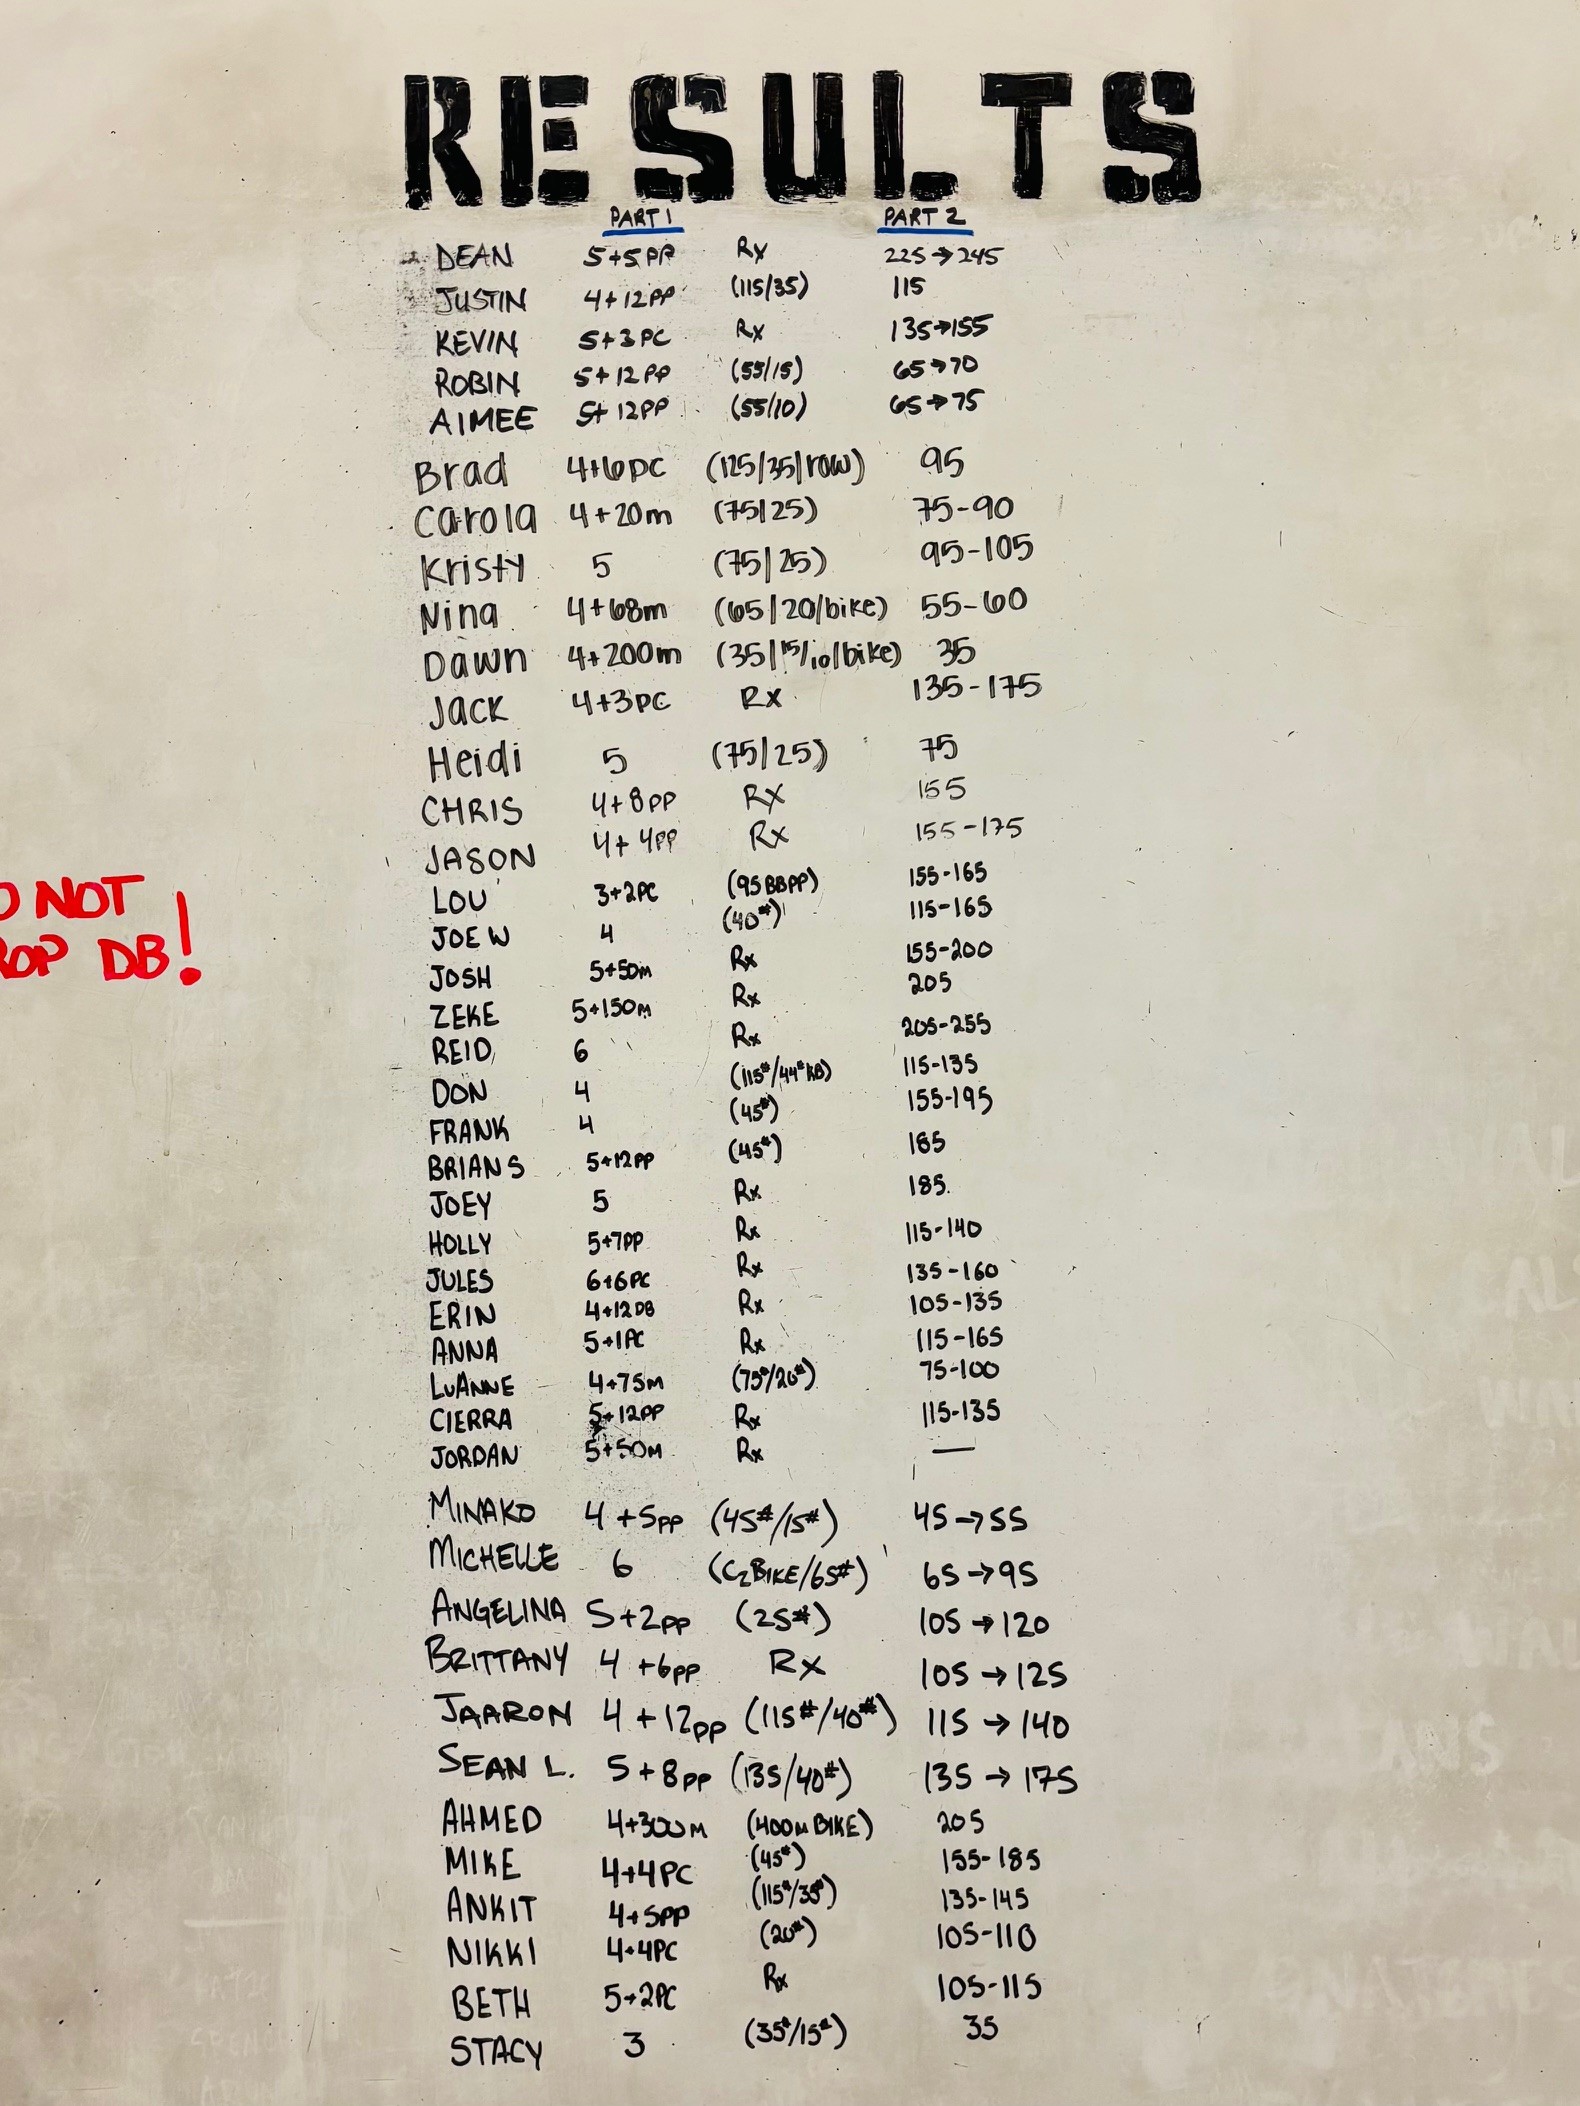 RESULTS
PART 1 PART 2
DEAN 5+5PP Rx 225→245
JUSTIN 4+12PP (115/35) 115
KEVIN 5+3PC Rx 135→155
ROBIN 5+12PP (55/15) 65→70
AIMEE 5+12PP (55/10) 65→75
Brad 4+6pc (125/35/row) 95
Carola 4+20m (75/25) 75-90
Kristy 5 (75/25) 95-105
Nina 4+68m (65/20/bike) 55-60
Dawn 4+200m (35/15/10/bike) 35
Jack 4+3pc Rx 135-175
Heidi 5 (75/25) 75
CHRIS 4+8PP Rx 155
JASON 4+4PP Rx 155-175
LOU 3+2PC (95BBPP) 155-165
JOE W 4 (40#) 115-165
JOSH 5+50m Rx 155-200
ZEKE 5+150m Rx 205
REID 6 Rx 205-255
DON 4 (115#/44#KB) 115-135
FRANK 4 (45#) 155-195
BRIAN S 5+12PP (45#) 185
JOEY 5 Rx 185
HOLLY 5+7PP Rx 115-140
JULES 6+6PC Rx 135-160
ERIN 4+12DB Rx 105-135
ANNA 5+1PC Rx 115-165
LUANNE 4+75M (75#/20#) 75-100
CIERRA 5+12PP Rx 115-135
JORDAN 5+50M Rx —
MINAKO 4+5PP (45#/15#) 45→55
MICHELLE 6 (C2BIKE/65#) 65→95
ANGELINA 5+2PP (25#) 105→120
BRITTANY 4+6PP Rx 105→125
JAARON 4+12PP (115#/40#) 115→140
SEAN L. 5+8PP (135/40#) 135→175
AHMED 4+300m (400M BIKE) 205
MIKE 4+4PC (45#) 155-185
ANKIT 4+5PP (115#/35#) 135-145
NIKKI 4+4PC (20#) 105-110
BETH 5+2PC Rx 105-115
STACY 3 (35#/15#) 35
O NOT
ROP DB!